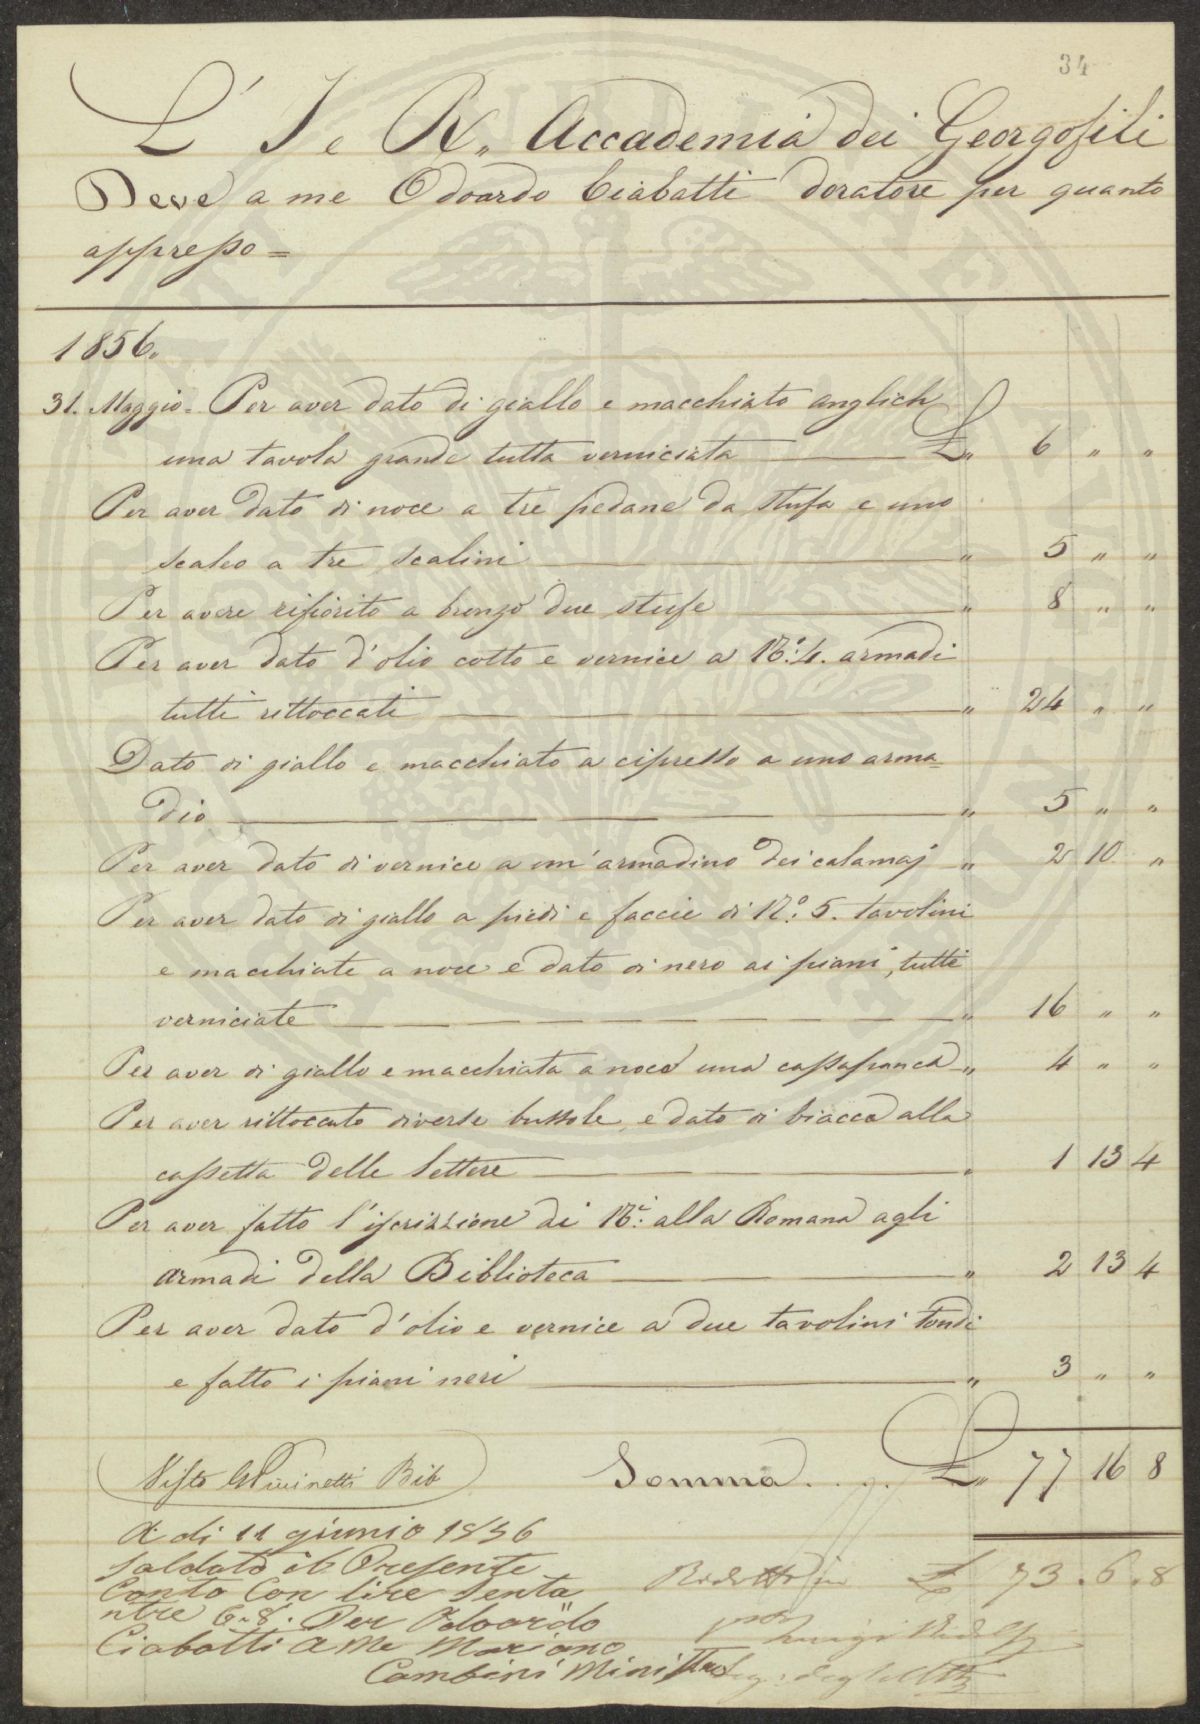 34
L' I e R. Accademia dei Georgofili
Deve a me Odoardo Ciabatti doratore per quanto
appresso =
1856.
31. Maggio. Per aver dato di giallo e macchiato anglich
una tavola grande tutta verniciata £ 6 " "
Per aver dato di noce a tre pedane da stufa e uno
scaleo a tre scalini " 5 " "
Per avere rifiorito a bronzo due stufe " 8 " "
Per aver dato d'olio cotto e vernice a N.° 4. armadi
tutti rittoccati " 24 " "
Dato di giallo e macchiato a cipresso a uno arma=
dio " 5 " "
Per aver dato di vernice a un'armadino dei calamaj " 2 10 "
Per aver dato di giallo a piedi e faccie di N.° 5. tavolini
e macchiate a noce e dato di nero ai piani, tutte
verniciate " 16 " "
Per aver di giallo e macchiata a noce una cassapanca " 4 " "
Per aver rittoccato diverse bussole, e dato di biacca alla
cassetta delle lettere " 1 13 4
Per aver fatto l'iscrizzione di N.i alla Romana agli
armadi della Biblioteca " 2 13 4
Per aver dato d'olio e vernice a due tavolini tondi
e fatto i piani neri " 3 " "
Visto Bib
Somma . . . . £ 77 16 8
A di 11 giunio 1856
Saldato il Presente
£ 73. 6. 8
Conto Con lire Senta
ntre 6. 8. Per Edoardo
Luigi
Ciabatti a Me Mariano
Cambini Ministro
Seg. degli Atti